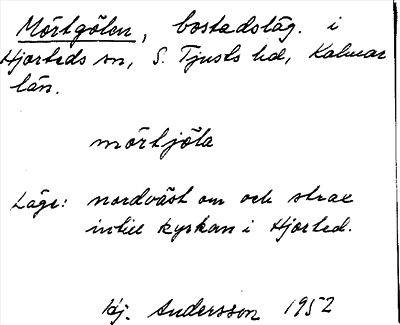 Mörtgölen, bostadsläg. i
Hjorteds sn, S. Tjusts hd, Kalmar
län.
mörtjöla
Läge: nordväst om och strax
intill kyrkan i Hjorted.
Hj. Andersson 1952